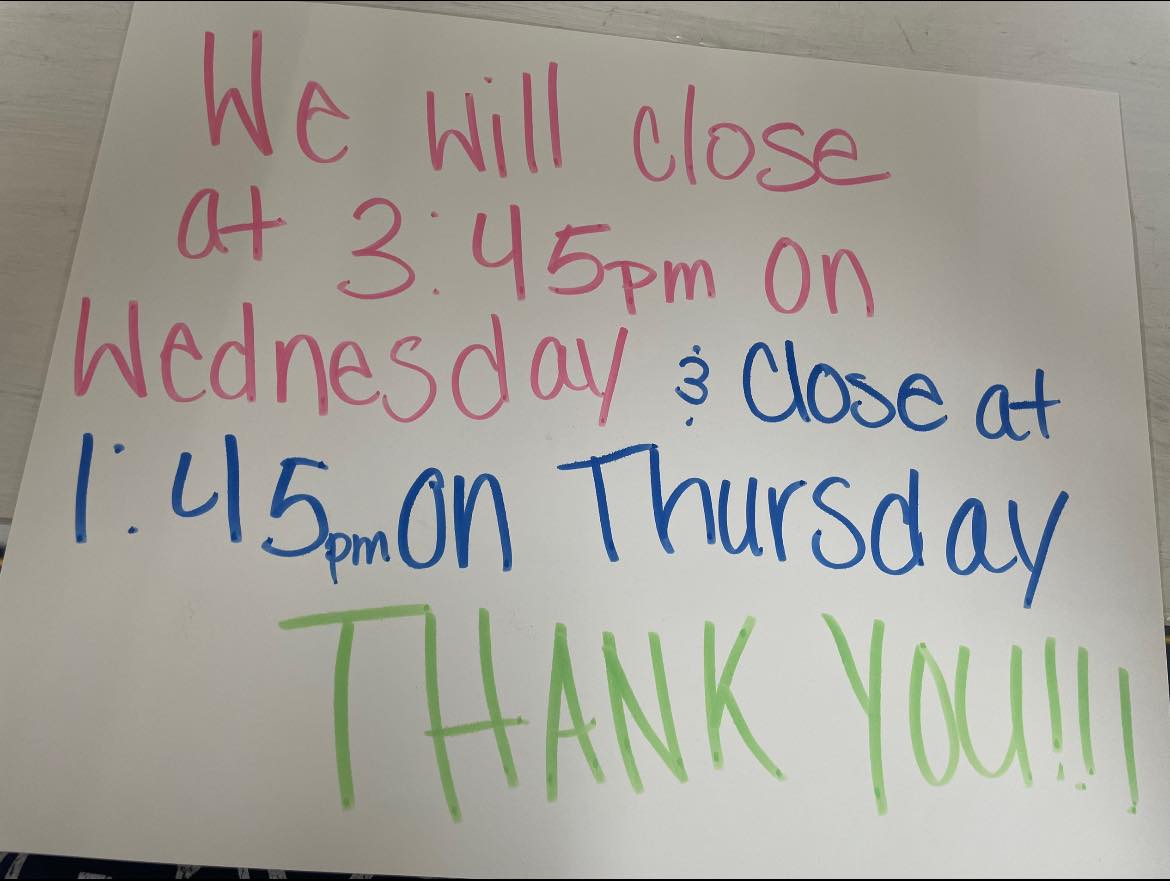 We will close
at 3:45pm on
Wednesday & Close at
1:45pm on Thursday
THANK YOU!!!